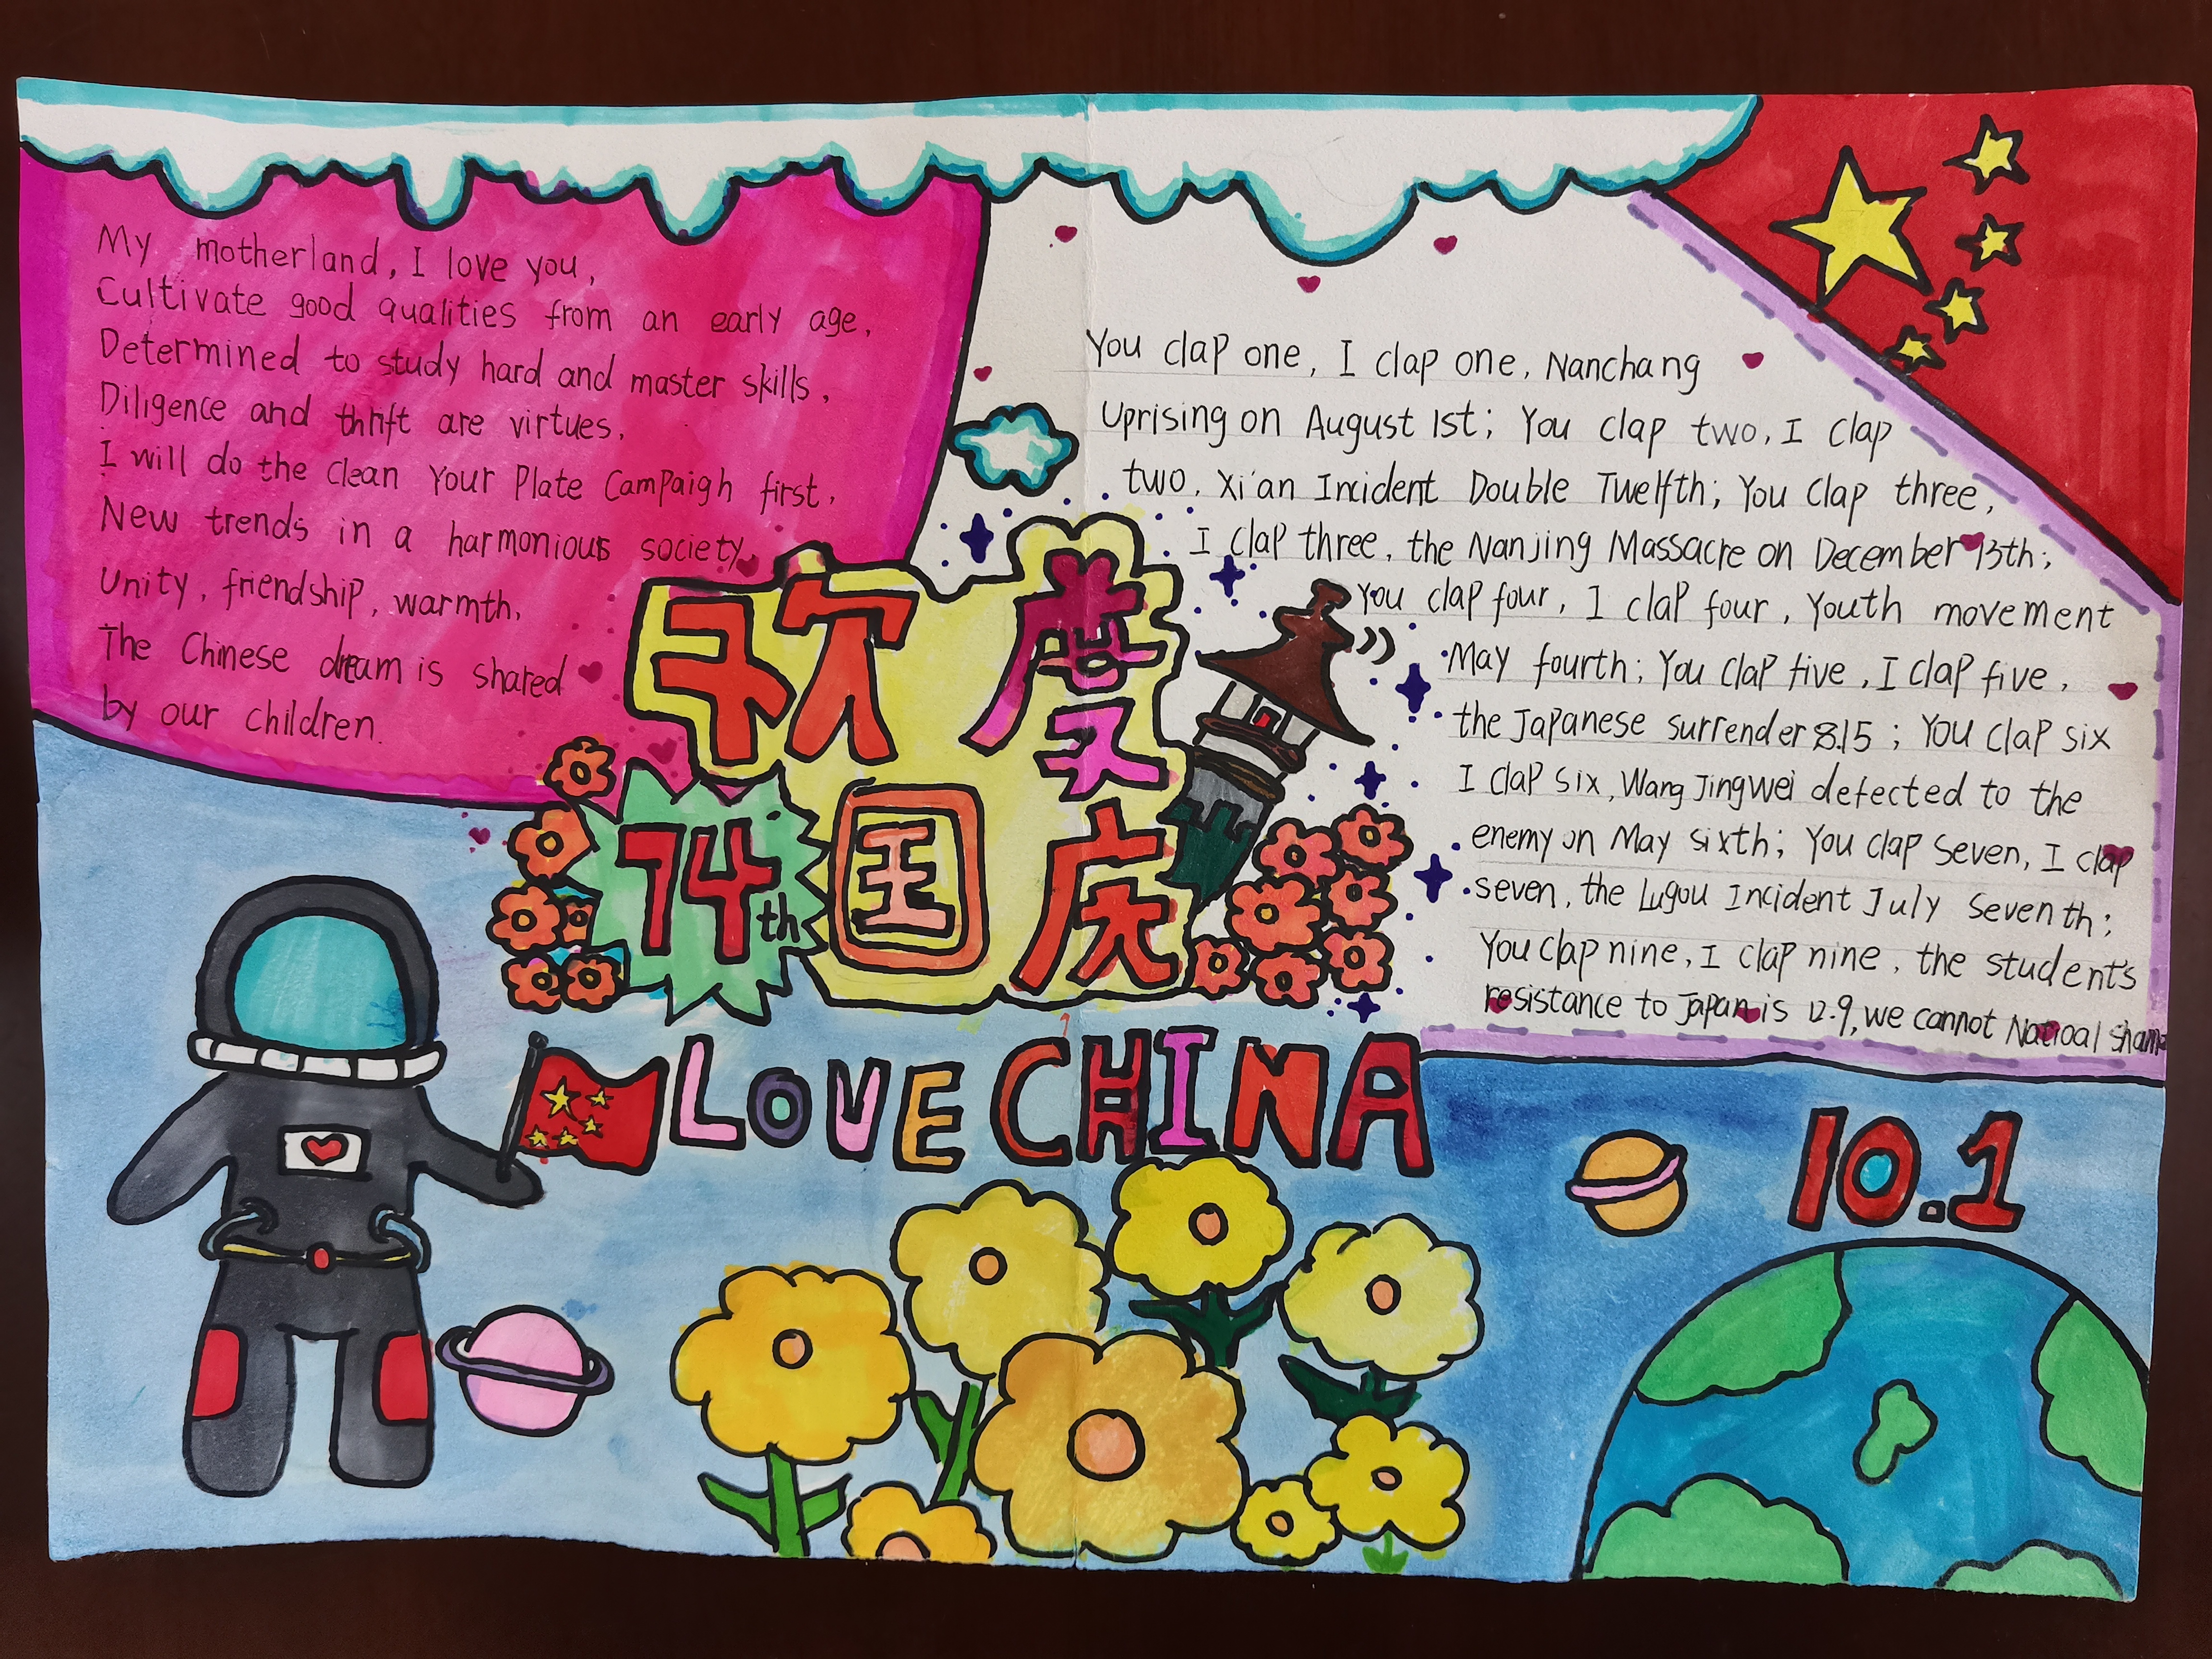 My motherland, I love you,
Cultivate good qualities from an early age,
Determined to study hard and master skills,
Diligence and thrift are virtues,
I will do the Clean Your Plate Campaigh first,
New trends in a harmonious society,
Unity, friendship, warmth,
The Chinese dream is shared
by our children.
You clap one, I clap one, Nanchang
Uprising on August 1st; You clap two, I clap
two, Xi'an Incident Double Twelfth; You Clap three,
I clap three, the Nanjing Massacre on December 13th;
You clap four, I clap four, Youth movement
May fourth; You clap five, I clap five,
the Japanese surrender 8.15; You clap six
I clap six, Wang Jingwei defected to the
enemy on May sixth; You clap Seven, I clap
seven, the Lugou Incident July Seventh;
You clap nine, I clap nine, the student's
resistance to Japan is 12.9, we cannot Natioal shame
欢度
74th
国庆
LOVE CHINA
10.1